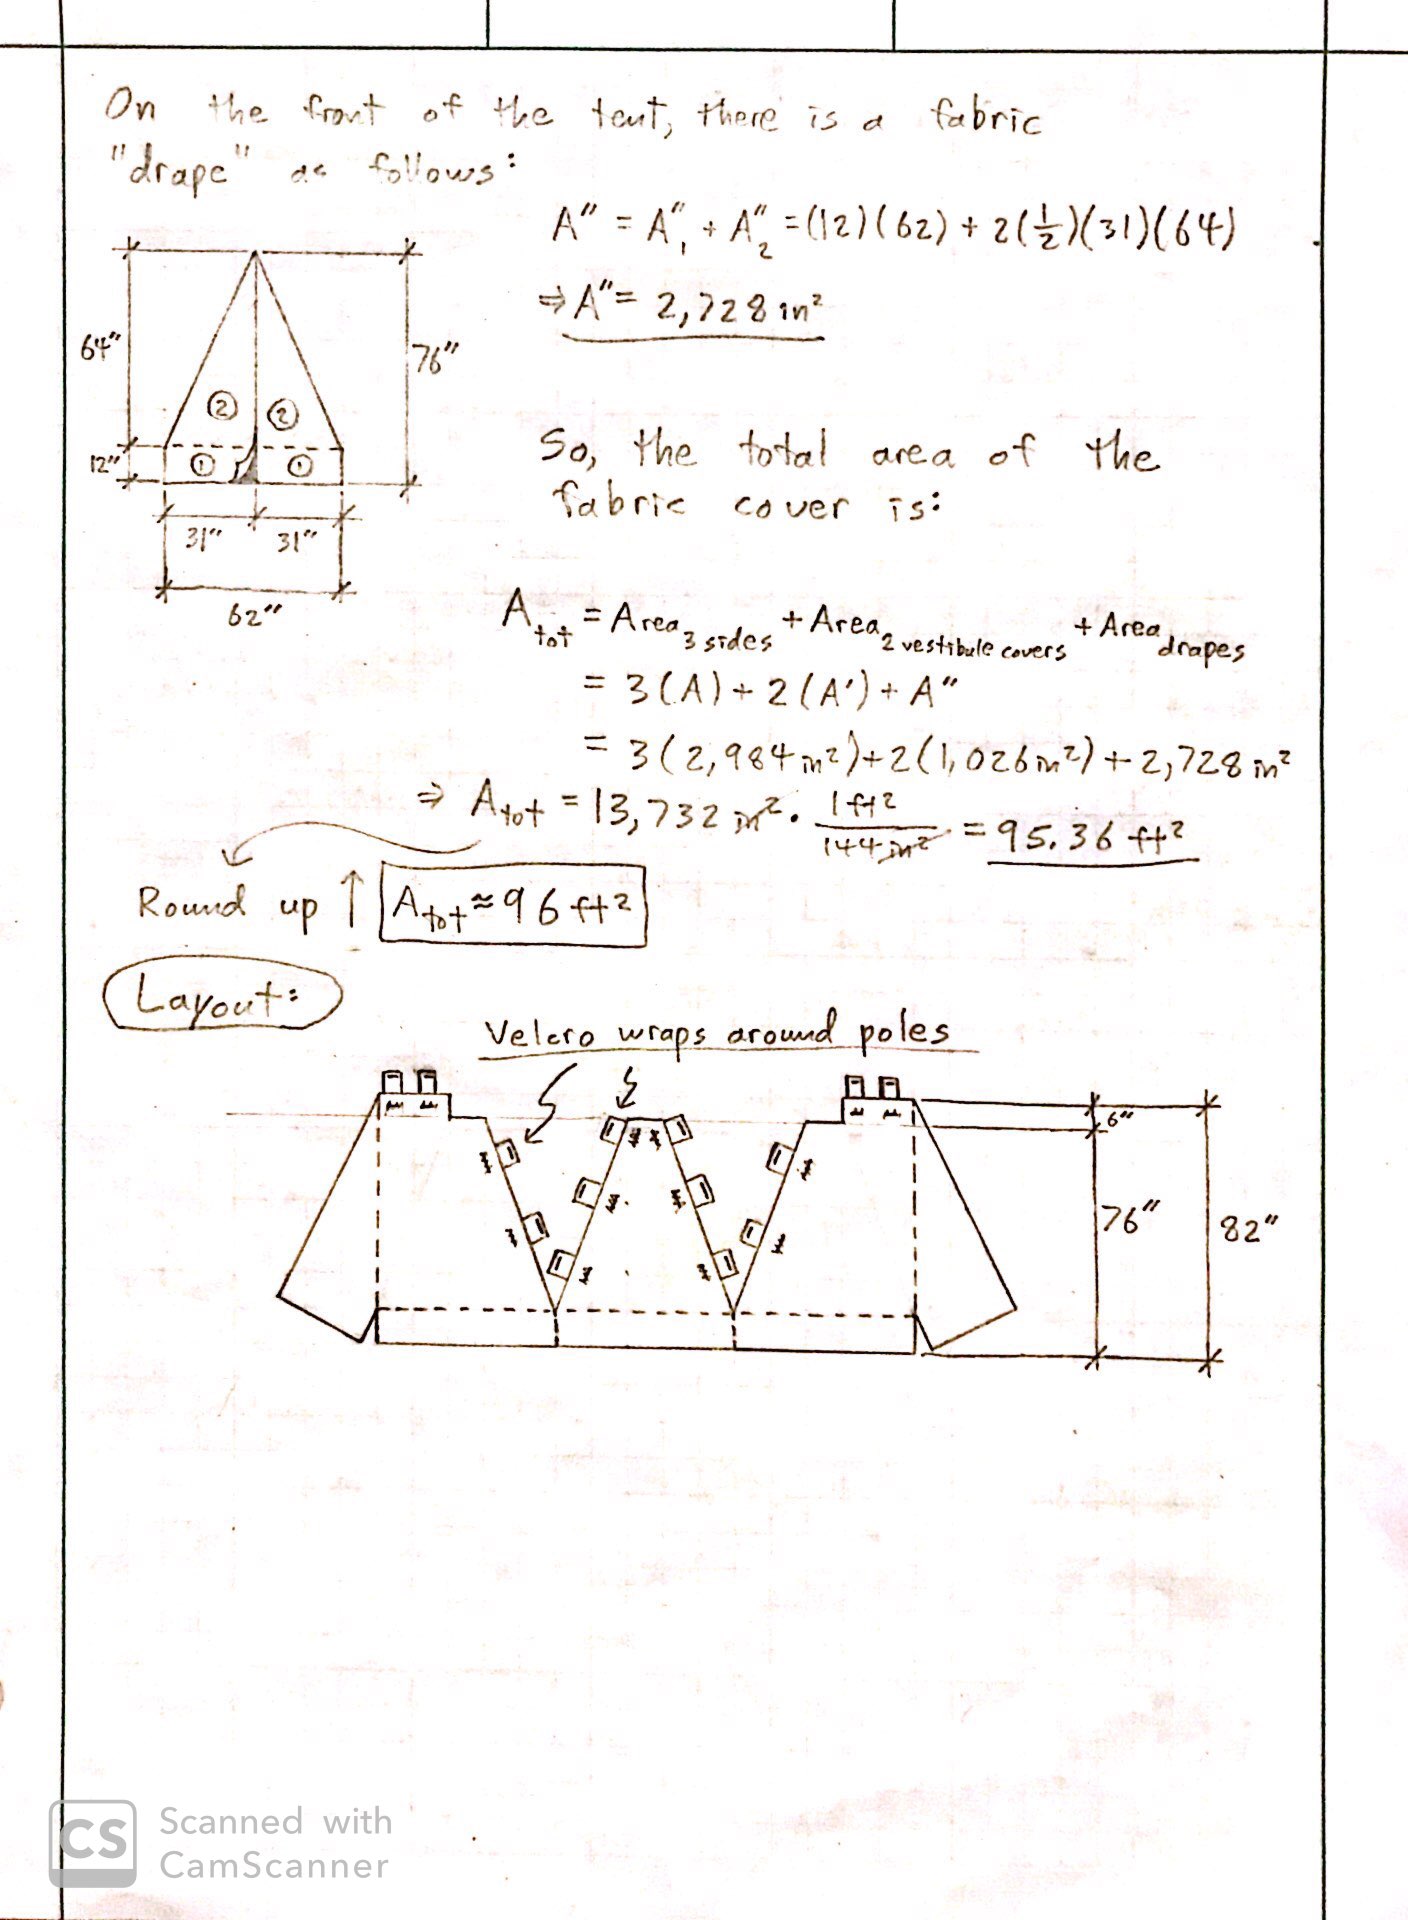 On the front of the tent, there is a fabric
"drape" as follows:
A" = A"₁ + A"₂ = (12)(62) + 2(½)(31)(64)
⇒ A" = 2,728 in²
64"
76"
② ②
12"
① ①
31" 31"
62"
So, the total area of the
fabric cover is:
A_tot = Area_3 sides + Area_2 vestibule covers + Area_drapes
= 3(A) + 2(A') + A"
= 3(2,984 in²) + 2(1,026 in²) + 2,728 in²
⇒ A_tot = 13,732 in² · 1 ft² / 144 in² = 95.36 ft²
Round up ↑ A_tot ≈ 96 ft²
Layout:
Velcro wraps around poles
6"
76"
82"
CS
Scanned with
CamScanner